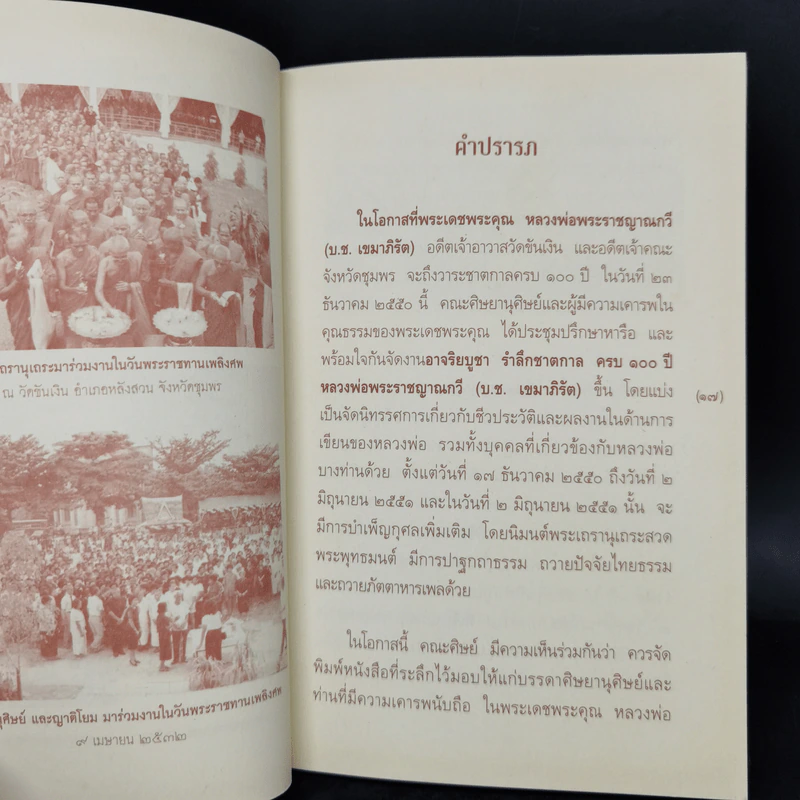 ถรานุเถระมาร่วมงานในวันพระราชทานเพลิงศพ
ณ วัดขันเงิน อำเภอหลังสวน จังหวัดชุมพร
นุศิษย์ และญาติโยม มาร่วมงานในวันพระราชทานเพลิงศพ
๙ เมษายน ๒๕๓๒
คำปรารภ
ในโอกาสที่พระเดชพระคุณ หลวงพ่อพระราชญาณกวี
(บ.ช. เขมาภิรัต) อดีตเจ้าอาวาสวัดขันเงิน และอดีตเจ้าคณะ
จังหวัดชุมพร จะถึงวาระชาตกาลครบ ๑๐๐ ปี ในวันที่ ๒๓
ธันวาคม ๒๕๕๐ นี้ คณะศิษยานุศิษย์และผู้มีความเคารพใน
คุณธรรมของพระเดชพระคุณ ได้ประชุมปรึกษาหารือ และ
พร้อมใจกันจัดงานอาจริยบูชา รำลึกชาตกาล ครบ ๑๐๐ ปี
หลวงพ่อพระราชญาณกวี (บ.ช. เขมาภิรัต) ขึ้น โดยแบ่ง
เป็นจัดนิทรรศการเกี่ยวกับชีวประวัติและผลงานในด้านการ
เขียนของหลวงพ่อ รวมทั้งบุคคลที่เกี่ยวข้องกับหลวงพ่อ
บางท่านด้วย ตั้งแต่วันที่ ๑๗ ธันวาคม ๒๕๕๐ ถึงวันที่ ๒
มิถุนายน ๒๕๕๑ และในวันที่ ๒ มิถุนายน ๒๕๕๑ นั้น จะ
มีการบำเพ็ญกุศลเพิ่มเติม โดยนิมนต์พระเถรานุเถระสวด
พระพุทธมนต์ มีการปาฐกถาธรรม ถวายปัจจัยไทยธรรม
และถวายภัตตาหารเพลด้วย
ในโอกาสนี้ คณะศิษย์ มีความเห็นร่วมกันว่า ควรจัด
พิมพ์หนังสือที่ระลึกไว้มอบให้แก่บรรดาศิษยานุศิษย์และ
ท่านที่มีความเคารพนับถือ ในพระเดชพระคุณ หลวงพ่อ
(๑๗)